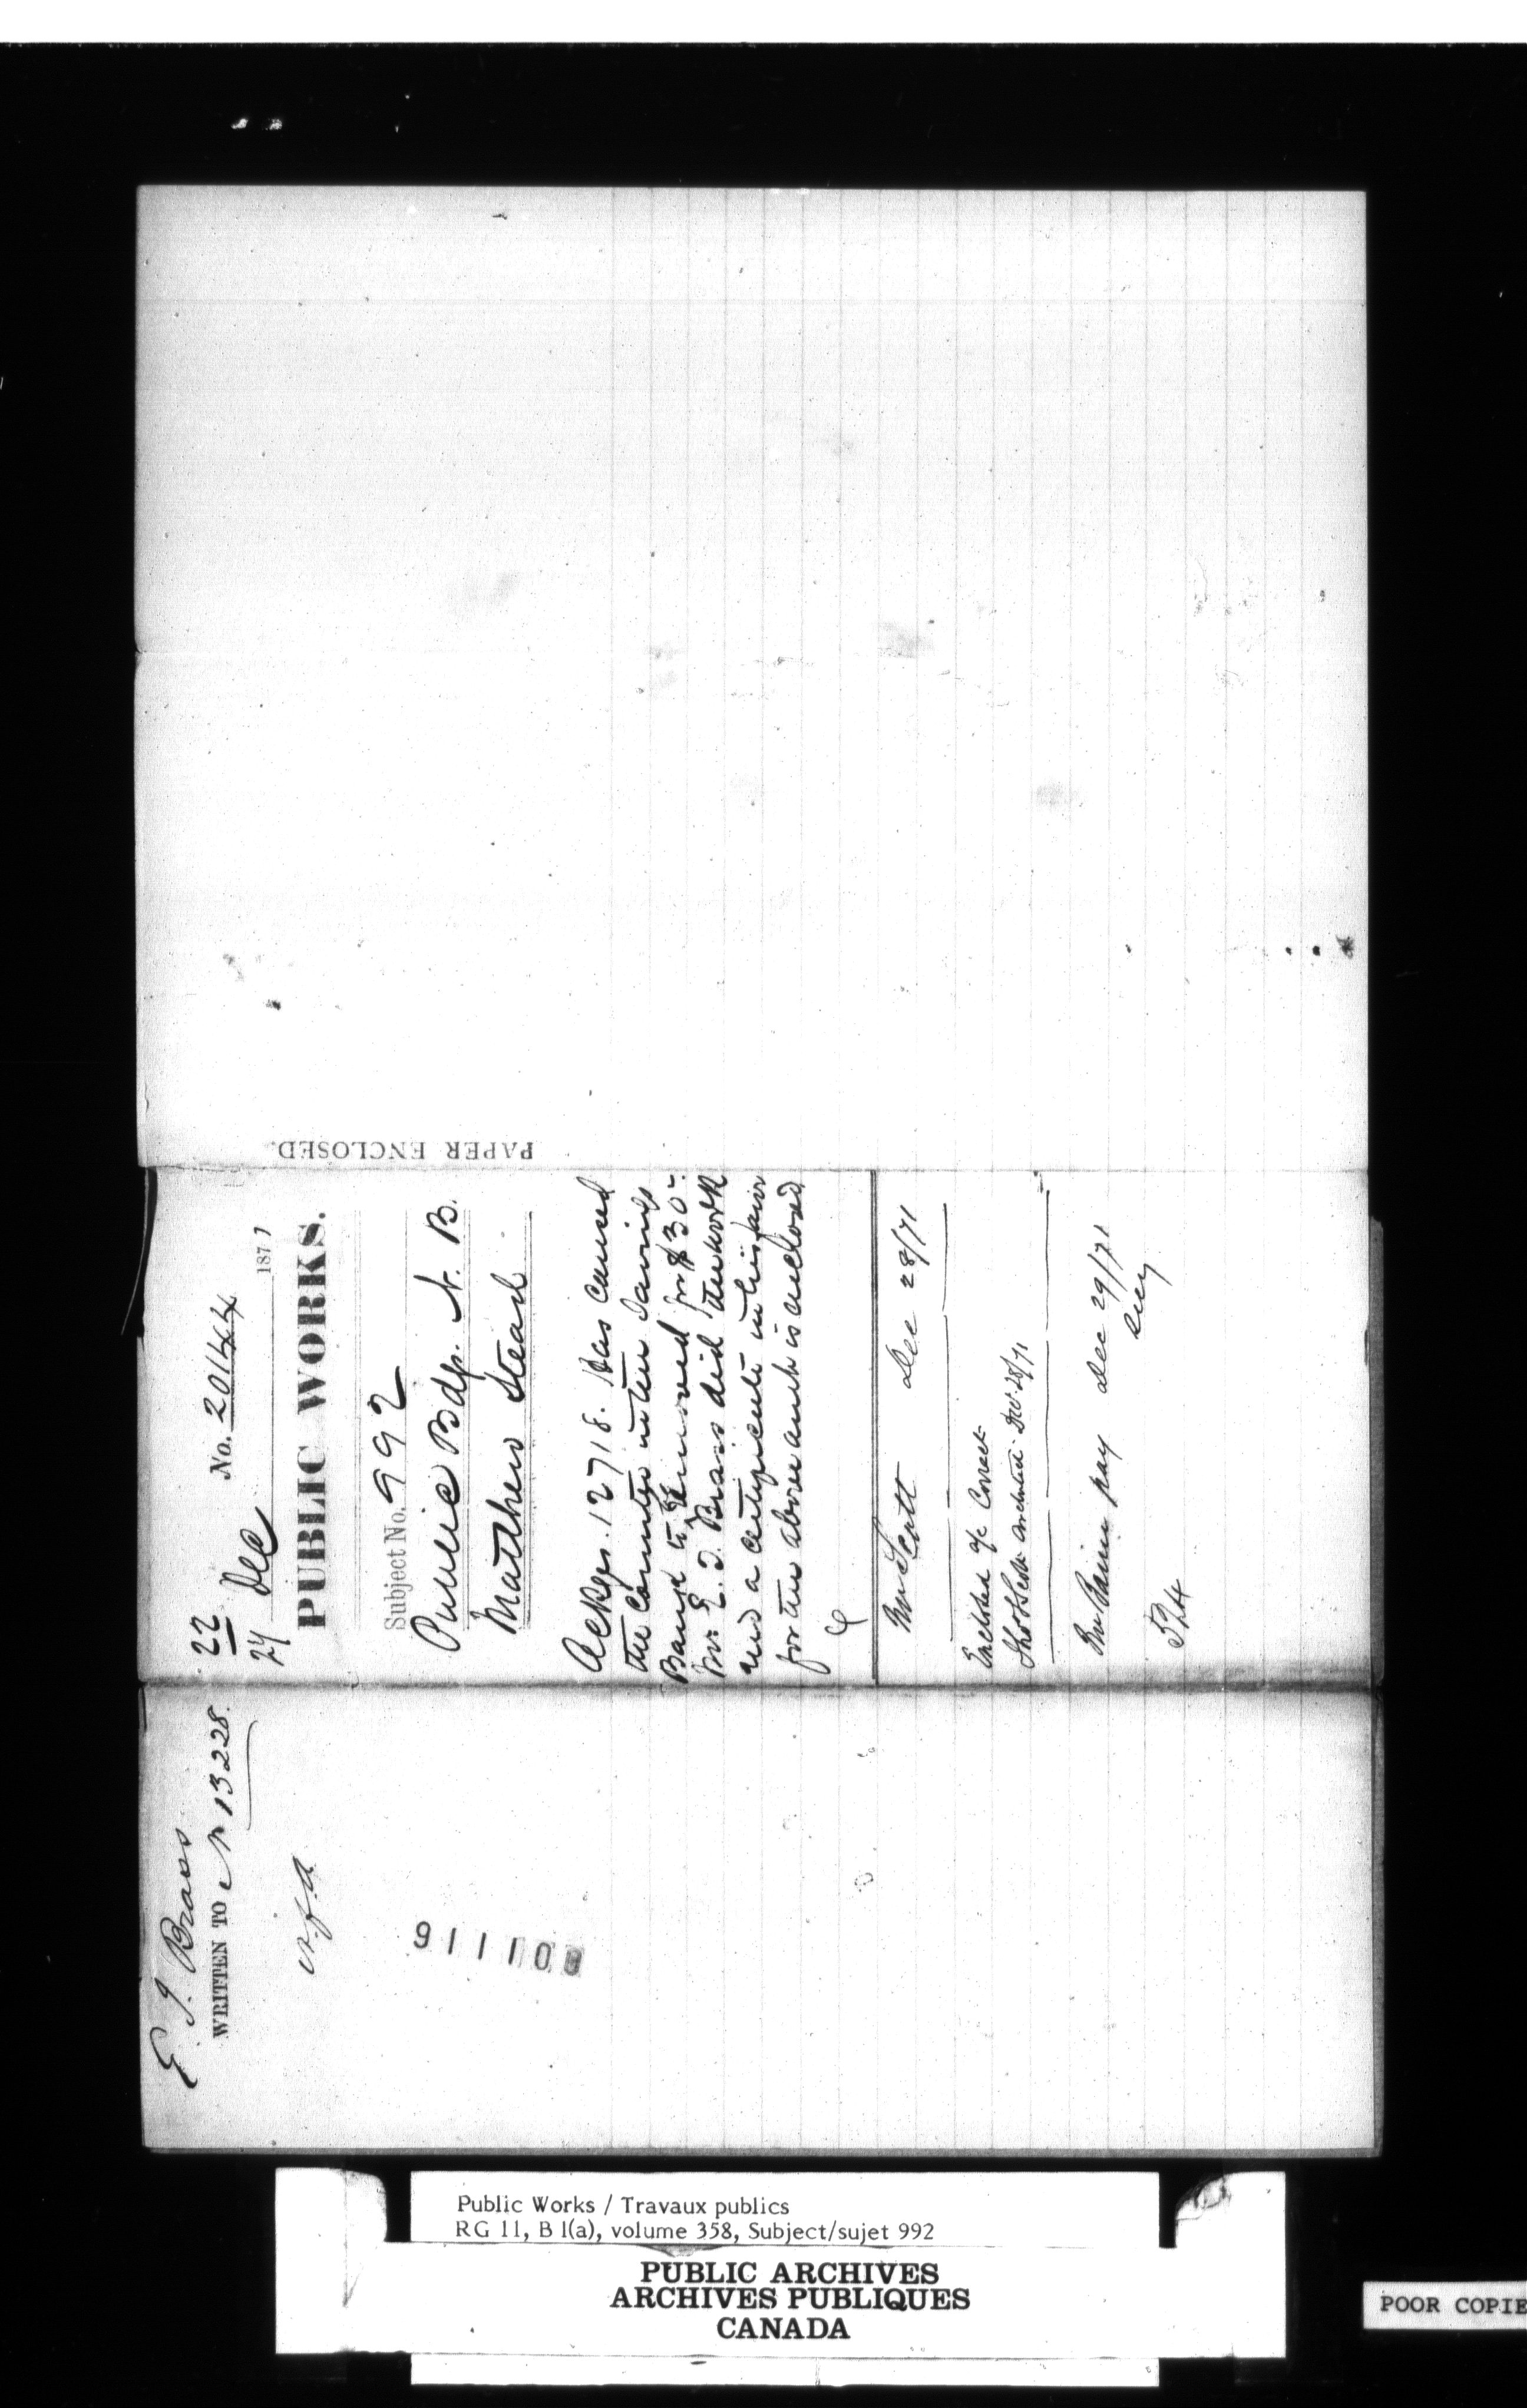 22
27 Dec 1871
No. 20144
PUBLIC WORKS.
Subject No. 992
Public Bdgs. N. B.
Matthew Stead
Ackges. 12718. Has caused
the Counter in the Savings
Bank to be removed for $30-
Mr. E. J. Brass did the work
and a certificate in his favor
for the above amt is enclosed
Mr Scott Dec 28/71
Enclosed a/c Correct
Thos S Scott Architect Dec. 28/71
Mr Baine pay Dec 29/71
Secy
PAPER ENCLOSED.
E. J. Brass
WRITTEN TO N 13228.
n.f.a
911100
Public Works / Travaux publics
RG 11, B 1(a), volume 358, Subject/sujet 992
PUBLIC ARCHIVES
ARCHIVES PUBLIQUES
CANADA
POOR COPIE